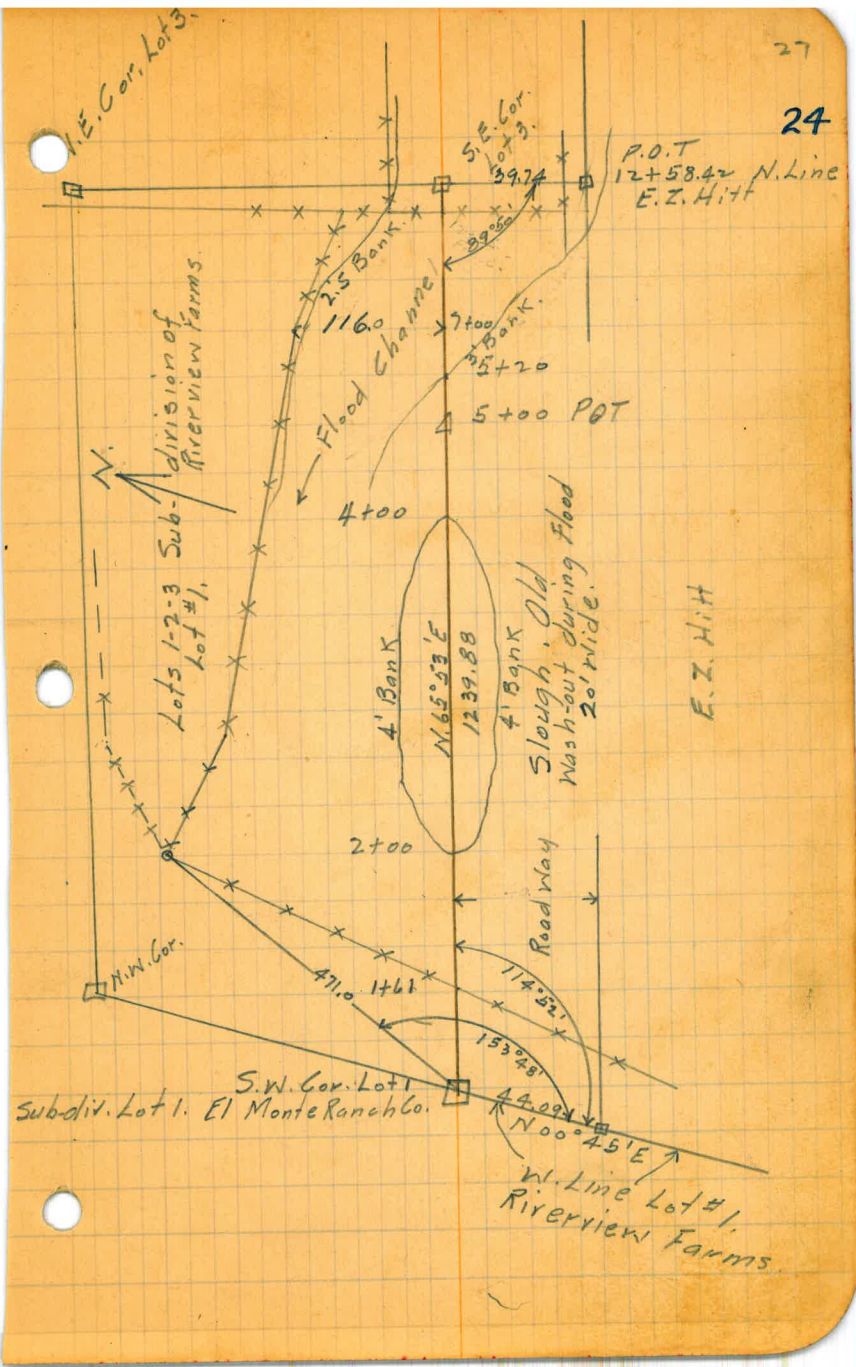 27
24
N.E. Cor. Lot 3.
S.E. Cor.
Lot 3.
39.74
P.O.T
12+58.42 N. Line
E.Z. Hitt
89°50'
2.5 Bank.
116.0
Flood Channel
7+00
3' Bank.
5+20
5+00 POT
4+00
N.
Lots 1-2-3 Sub-division of
Lot #1. Riverview Farms.
4' Bank
N.65°53'E
1239.88
4' Bank
Slough. Old
Wash-out during Flood
20' Wide.
E.Z. Hitt
2+00
Roadway
N.W. Cor.
471.0
1+61
114°52'
153°48'
S.W. Cor. Lot 1
Sub-div. Lot 1. El Monte Ranch Co.
44.09
N 00°45'E
W. Line Lot #1.
Riverview Farms.